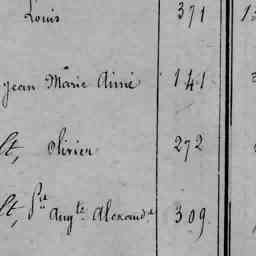 Louis 371 13
Jean Marie Aimé 141
lt, Olivier 272
lt, Pre Augte Alexandre 309